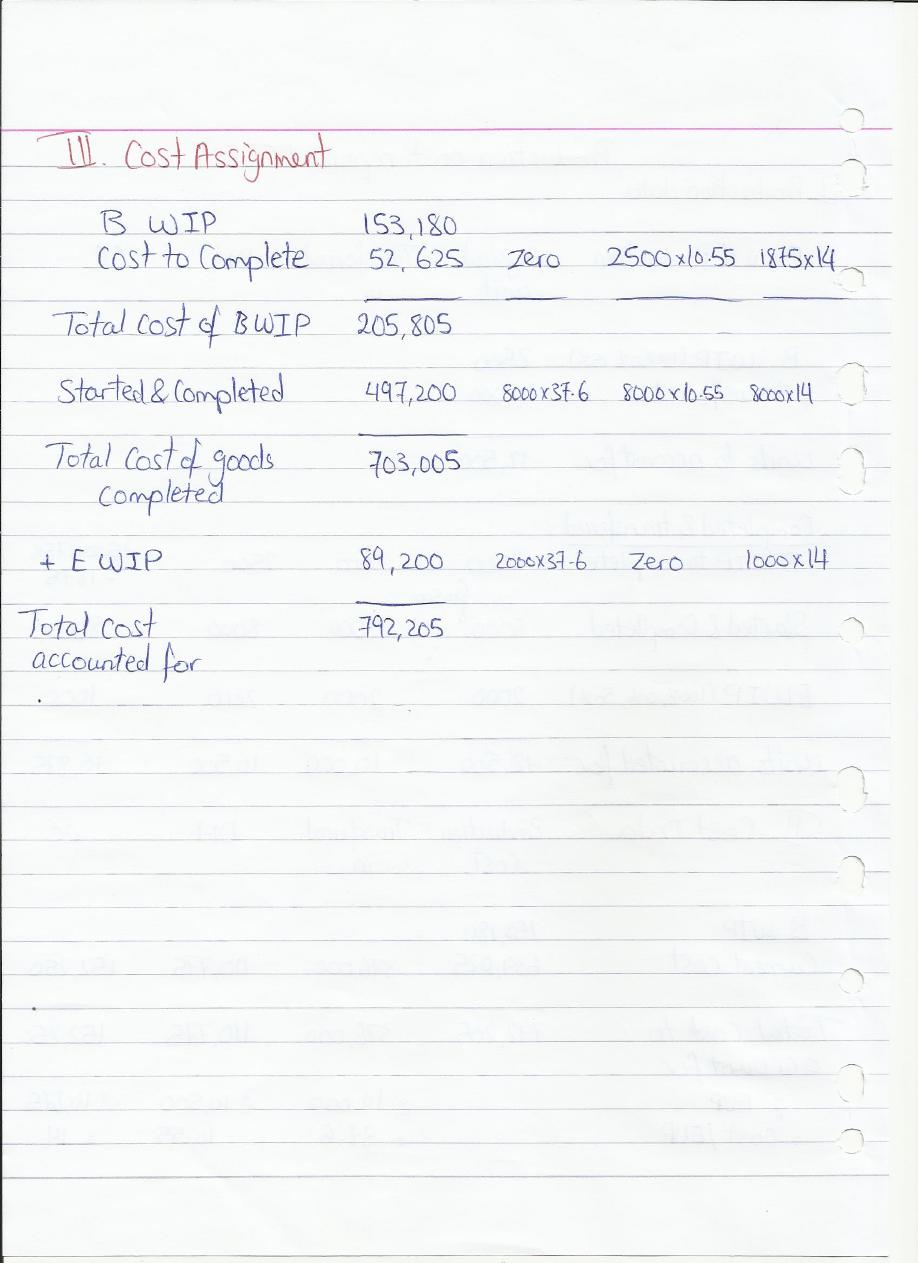 III. Cost Assignment
B WIP 153,180
Cost to Complete 52,625 Zero 2500x10.55 1875x14
Total Cost of BWIP 205,805
Started & Completed 497,200 8000x37.6 8000x10.55 8000x14
Total Cost of goods 703,005
completed
+ E WIP 89,200 2000x37.6 Zero 1000x14
Total Cost 792,205
accounted for